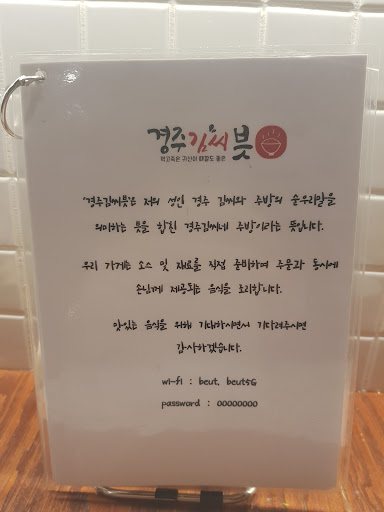 경주김씨븟
먹고죽은 귀신이 때깔도 좋은
'경주김씨븟'은 저의 성인 경주 김씨와 주방의 순우리말을
의미하는 븟을 합친 경주김씨네 주방이라는 뜻입니다.
우리 가게는 소스 및 재료를 직접 준비하여 주문과 동시에
손님께 제공되는 음식을 조리합니다.
맛있는 음식을 위해 기대하시면서 기다려주시면
감사하겠습니다.
wi-fi : beut, beut5G
password : 00000000